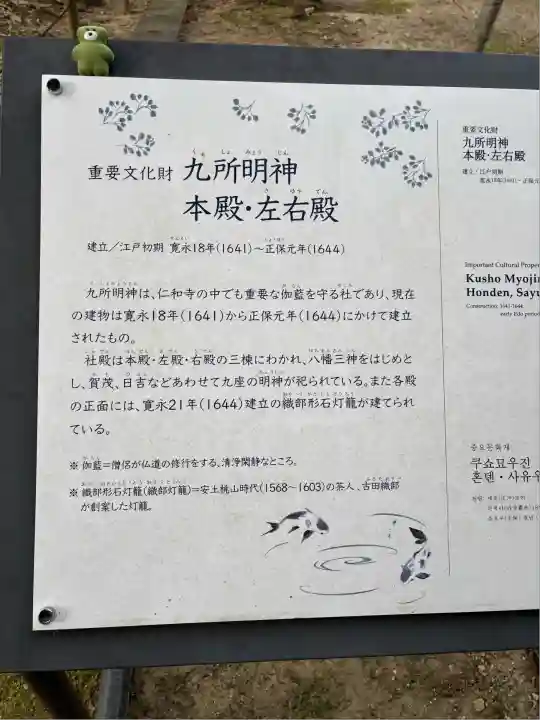 重要文化財 九所明神
本殿・左右殿
建立／江戸初期 寛永18年(1641)〜正保元年(1644)
九所明神は、仁和寺の中でも重要な伽藍を守る社であり、現在
の建物は寛永18年(1641)から正保元年(1644)にかけて建立
されたもの。
社殿は本殿・左殿・右殿の三棟にわかれ、八幡三神をはじめと
し、賀茂、日吉などあわせて九座の明神が祀られている。また各殿
の正面には、寛永21年(1644)建立の織部形石灯籠が建てられ
ている。
※ 伽藍＝僧侶が仏道の修行をする、清浄閑静なところ。
※ 織部形石灯籠(織部灯籠)＝安土桃山時代(1568〜1603)の茶人、古田織部
が創案した灯籠。
重要文化財
九所明神
本殿・左右殿
建立／江戸初期
Important Cultural Proper
Kusho Myojin
Honden, Sayu
Construction: 1641-1644
early Edo period
중요문화재
쿠쇼묘우진
혼덴・사유우